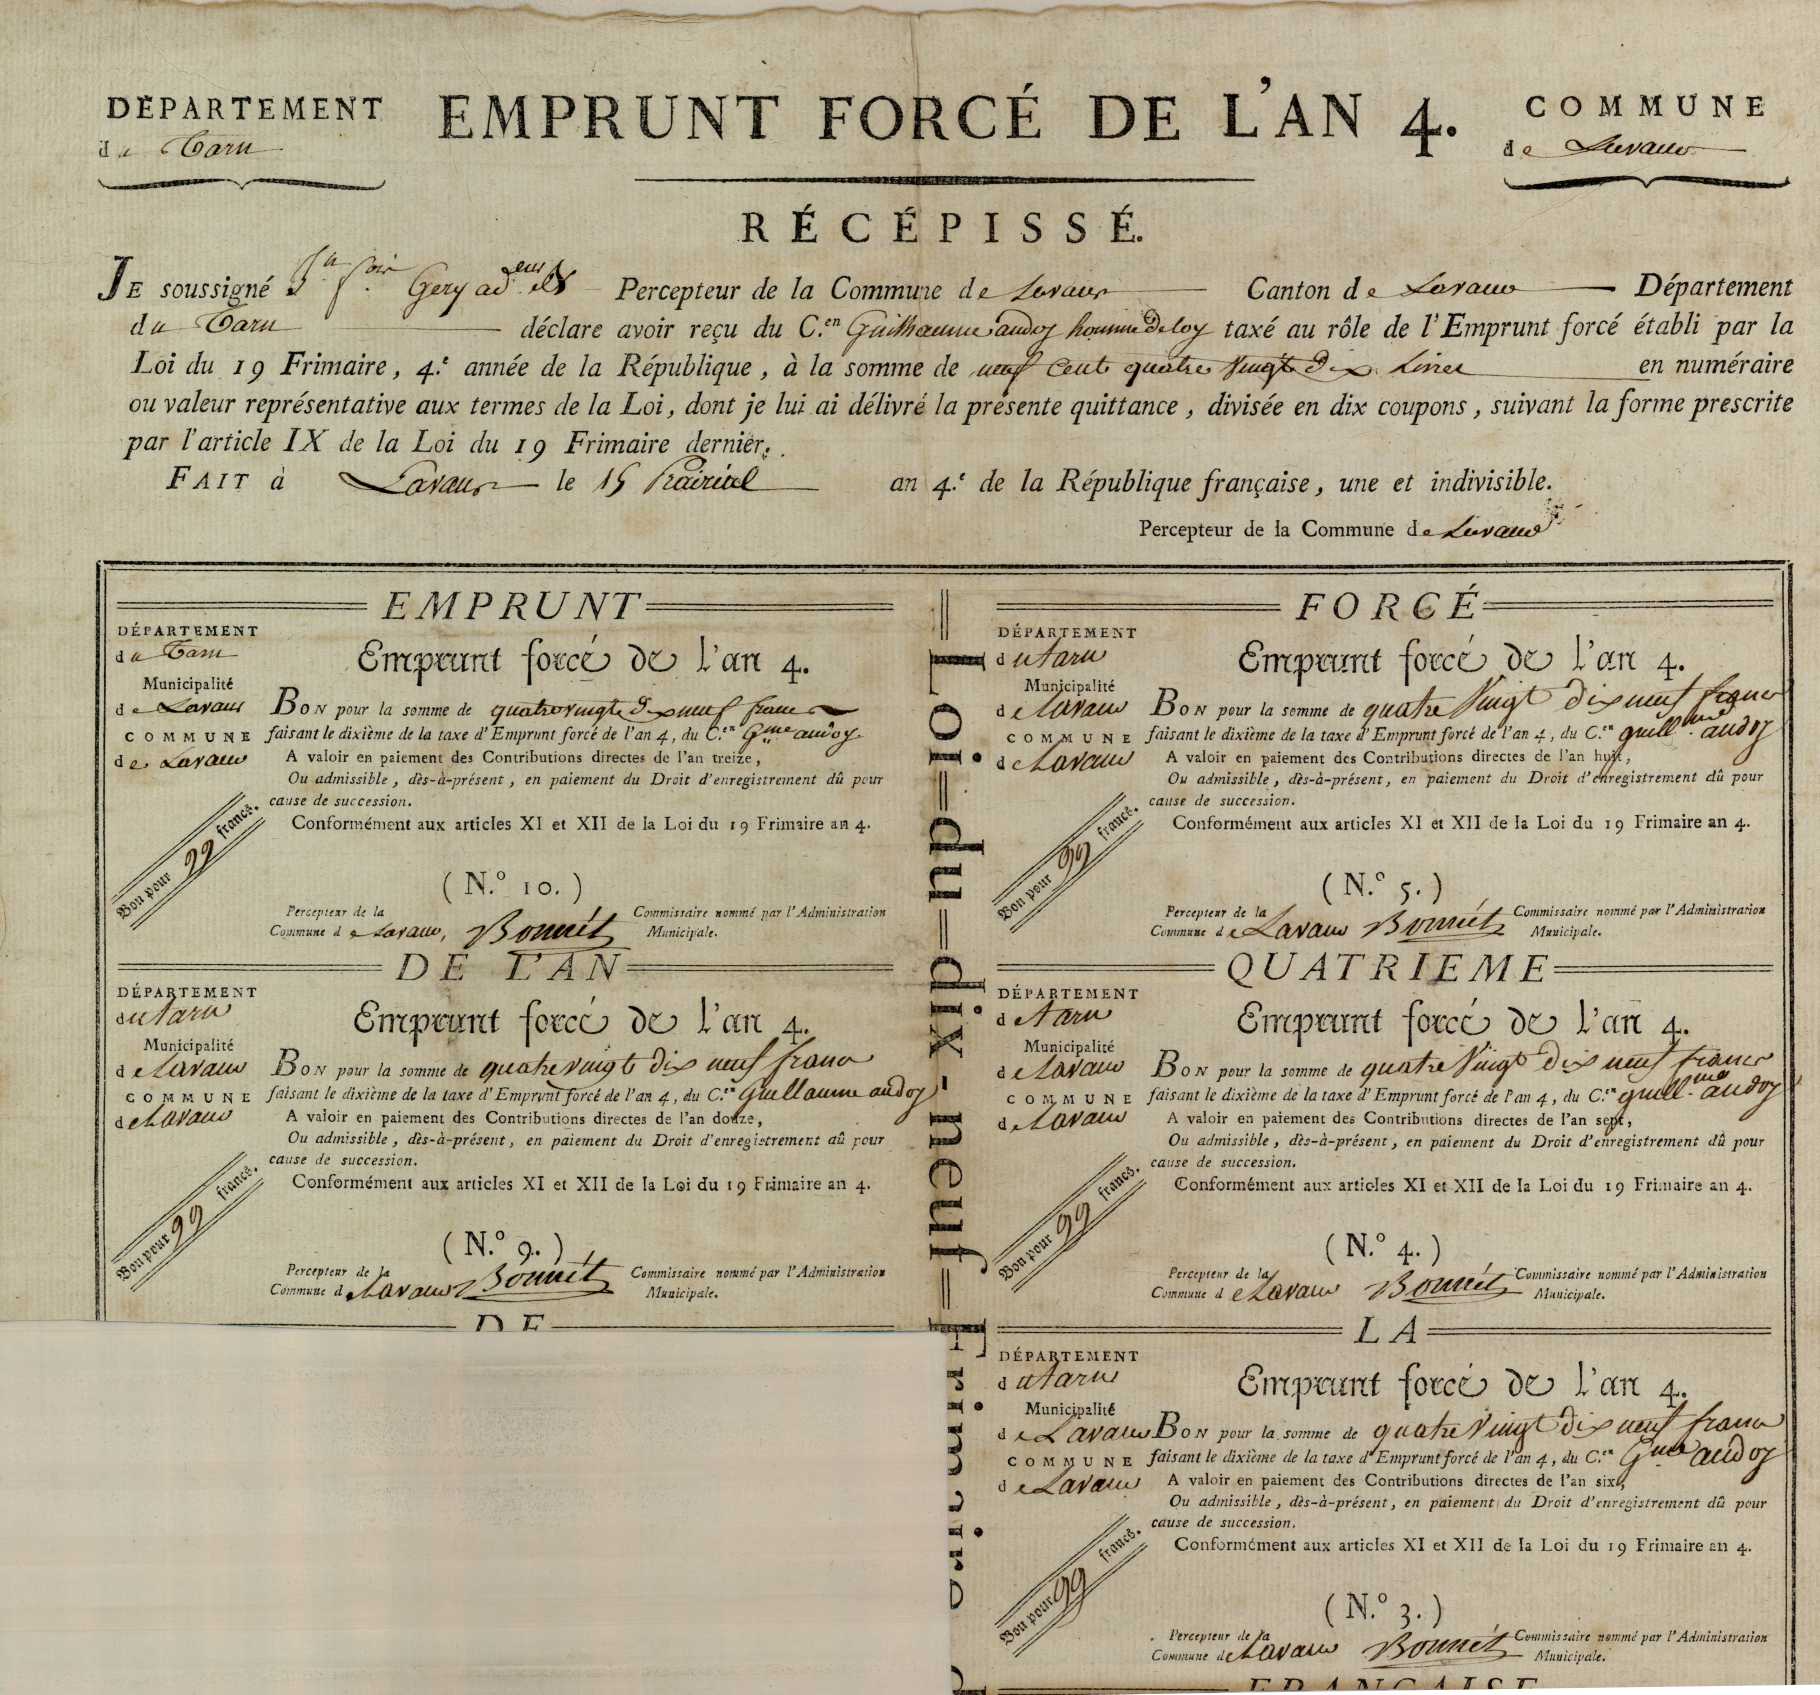 DÉPARTEMENT
du Tarn
EMPRUNT FORCÉ DE L'AN 4.
COMMUNE
de Lavaur
RÉCÉPISSÉ.
JE soussigné Percepteur de la Commune de Lavaur Canton de Lavaur Département
du Tarn déclare avoir reçu du C.en Guilhaume audoy homme de loy taxé au rôle de l'Emprunt forcé établi par la
Loi du 19 Frimaire, 4.e année de la République, à la somme de neuf cent quatre vingt dix Livres en numéraire
ou valeur représentative aux termes de la Loi, dont je lui ai délivré la présente quittance, divisée en dix coupons, suivant la forme prescrite
par l'article IX de la Loi du 19 Frimaire dernier.
FAIT à Lavaur le 15 Prairial an 4.e de la République française, une et indivisible.
Percepteur de la Commune de Lavaur
EMPRUNT
DÉPARTEMENT
du Tarn
Emprunt forcé de l'an 4.
Municipalité
de Lavaur
BON pour la somme de quatrevingt dixneuf francs
COMMUNE
faisant le dixième de la taxe d'Emprunt forcé de l'an 4, du C.en Gme audoy
de Lavaur
A valoir en paiement des Contributions directes de l'an treize,
Ou admissible, dès-à-présent, en paiement du Droit d'enregistrement dû pour
cause de succession.
Conformément aux articles XI et XII de la Loi du 19 Frimaire an 4.
Bon pour 99 francs.
(N.o 10.)
Percepteur de la
Commune de Lavaur,
Bonnét
Commissaire nommé par l'Administration
Municipale.
FORCÉ
DÉPARTEMENT
du tarn
Emprunt forcé de l'an 4.
Municipalité
de Lavaur
BON pour la somme de quatre Vingt dix neuf francs
COMMUNE
faisant le dixième de la taxe d'Emprunt forcé de l'an 4, du C.en guill.me audoy
de Lavaur
A valoir en paiement des Contributions directes de l'an huit,
Ou admissible, dès-à-présent, en paiement du Droit d'enregistrement dû pour
cause de succession.
Conformément aux articles XI et XII de la Loi du 19 Frimaire an 4.
Bon pour 99 francs.
(N.o 5.)
Percepteur de la
Commune de Lavaur
Bonnét
Commissaire nommé par l'Administration
Municipale.
DE L'AN
DÉPARTEMENT
du tarn
Emprunt forcé de l'an 4.
Municipalité
de Lavaur
BON pour la somme de quatrevingt dix neuf francs
COMMUNE
faisant le dixième de la taxe d'Emprunt forcé de l'an 4, du C.en Guillaume audoy
de Lavaur
A valoir en paiement des Contributions directes de l'an douze,
Ou admissible, dès-à-présent, en paiement du Droit d'enregistrement dû pour
cause de succession.
Conformément aux articles XI et XII de la Loi du 19 Frimaire an 4.
Bon pour 99 francs.
(N.o 9.)
Percepteur de la
Commune de Lavaur
Bonnét
Commissaire nommé par l'Administration
Municipale.
DE
QUATRIEME
DÉPARTEMENT
de tarn
Emprunt forcé de l'an 4.
Municipalité
de Lavaur
BON pour la somme de quatre Vingt dix neuf francs
COMMUNE
faisant le dixième de la taxe d'Emprunt forcé de l'an 4, du C.en guill.me audoy
de Lavaur
A valoir en paiement des Contributions directes de l'an sept,
Ou admissible, dès-à-présent, en paiement du Droit d'enregistrement dû pour
cause de succession.
Conformément aux articles XI et XII de la Loi du 19 Frimaire an 4.
Bon pour 99 francs.
(N.o 4.)
Percepteur de la
Commune de Lavaur
Bonnét
Commissaire nommé par l'Administration
Municipale.
LA
DÉPARTEMENT
du tarn
Emprunt forcé de l'an 4.
Municipalité
de Lavaur
BON pour la somme de quatre Vingt dix neuf francs
COMMUNE
faisant le dixième de la taxe d'Emprunt forcé de l'an 4, du C.en Gme audoy
de Lavaur
A valoir en paiement des Contributions directes de l'an six,
Ou admissible, dès-à-présent, en paiement du Droit d'enregistrement dû pour
cause de succession.
Conformément aux articles XI et XII de la Loi du 19 Frimaire an 4.
Bon pour 99 francs.
(N.o 3.)
Percepteur de la
Commune de Lavaur
Bonnét
Commissaire nommé par l'Administration
Municipale.
FRANÇAISE
Loi=du=dix-neuf=Frimaire